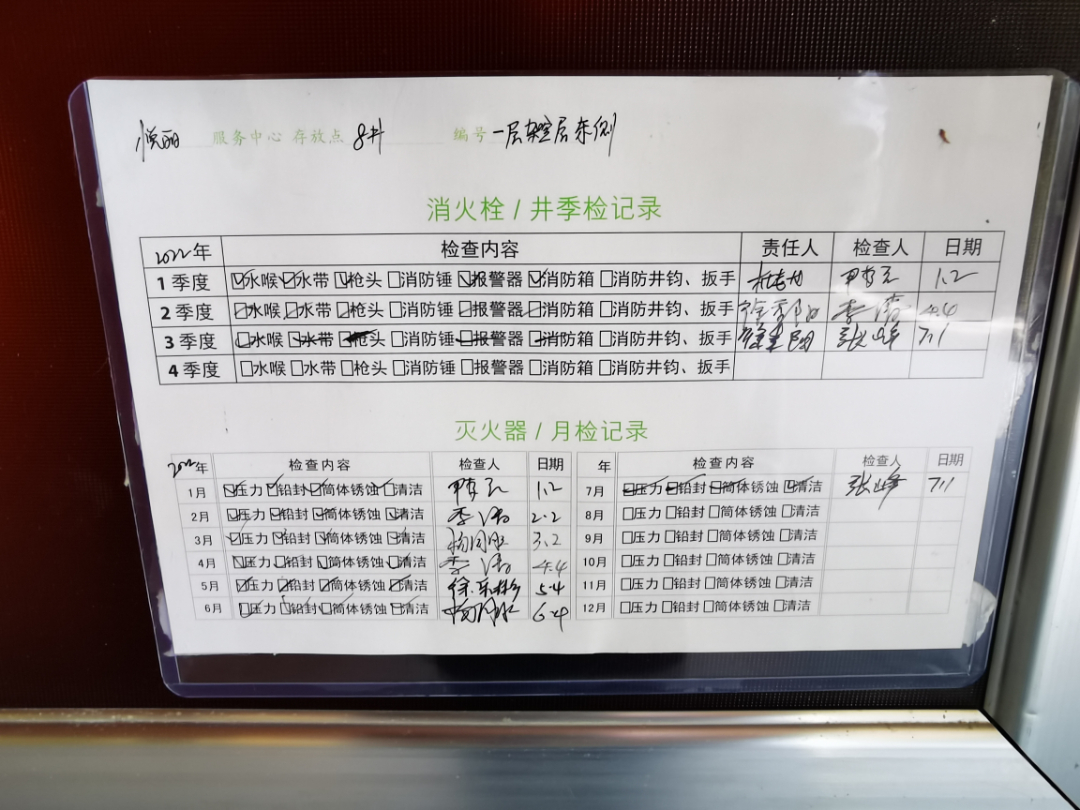 悦丽 服务中心 存放点 8# 编号 一层架空层东侧
消火栓 / 井季检记录
2022年 检查内容 责任人 检查人 日期
1 季度 ☑水喉 ☑水带 ☑枪头 □消防锤 ☑报警器 ☑消防箱 □消防井钧、扳手 1.2
2 季度 ☑水喉 ☑水带 ☑枪头 □消防锤 ☑报警器 ☑消防箱 □消防井钧、扳手 李涛 4.4
3 季度 ☑水喉 ☑水带 ☑枪头 □消防锤 ☑报警器 ☑消防箱 □消防井钧、扳手 张峰 7.1
4 季度 □水喉 □水带 □枪头 □消防锤 □报警器 □消防箱 □消防井钧、扳手
灭火器 / 月检记录
2022年 检查内容 检查人 日期 年 检查内容 检查人 日期
1月 ☑压力 ☑铅封 ☑筒体锈蚀 ☑清洁 1.2 7月 ☑压力 ☑铅封 ☑筒体锈蚀 ☑清洁 张峰 7.1
2月 ☑压力 ☑铅封 ☑筒体锈蚀 ☑清洁 李涛 2.2 8月 □压力 □铅封 □筒体锈蚀 □清洁
3月 ☑压力 ☑铅封 ☑筒体锈蚀 ☑清洁 3.2 9月 □压力 □铅封 □筒体锈蚀 □清洁
4月 ☑压力 ☑铅封 ☑筒体锈蚀 ☑清洁 李涛 4.4 10月 □压力 □铅封 □筒体锈蚀 □清洁
5月 ☑压力 ☑铅封 ☑筒体锈蚀 ☑清洁 5.4 11月 □压力 □铅封 □筒体锈蚀 □清洁
6月 ☑压力 ☑铅封 ☑筒体锈蚀 ☑清洁 6.4 12月 □压力 □铅封 □筒体锈蚀 □清洁